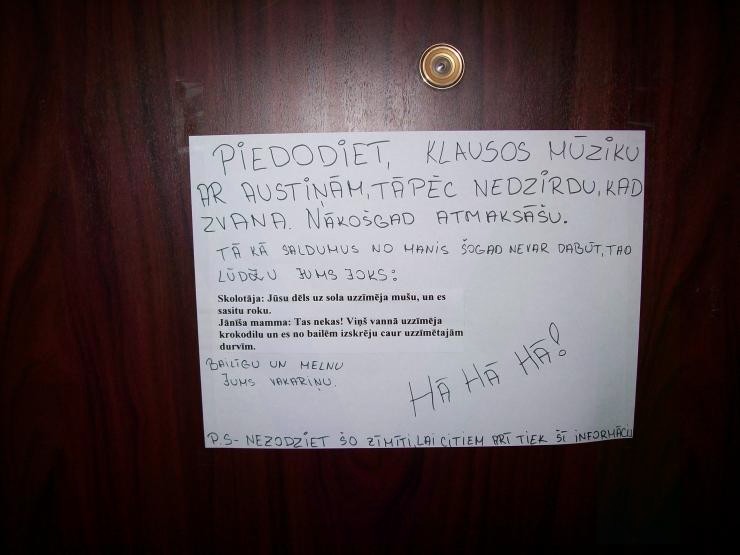 PIEDODIET, KLAUSOS MŪZIKU
AR AUSTIŅĀM, TĀPĒC NEDZIRDU, KAD
ZVANA. NĀKOŠGAD ATMAKSĀŠU.
TĀ KĀ SALDUMUS NO MANIS ŠOGAD NEVAR DABŪT, TAD
LŪDZU JUMS JOKS:
Skolotāja: Jūsu dēls uz sola uzzīmēja mušu, un es
sasitu roku.
Jānīša mamma: Tas nekas! Viņš vannā uzzīmēja
krokodilu un es no bailēm izskrēju caur uzzīmētajām
durvīm.
BAILĪGU UN MELNU
JUMS VAKARIŅU.
HĀ HĀ HĀ!
P.S- NEZODZIET ŠO ZĪMĪTI, LAI CITIEM ARĪ TIEK ŠĪ INFORMĀCIJ